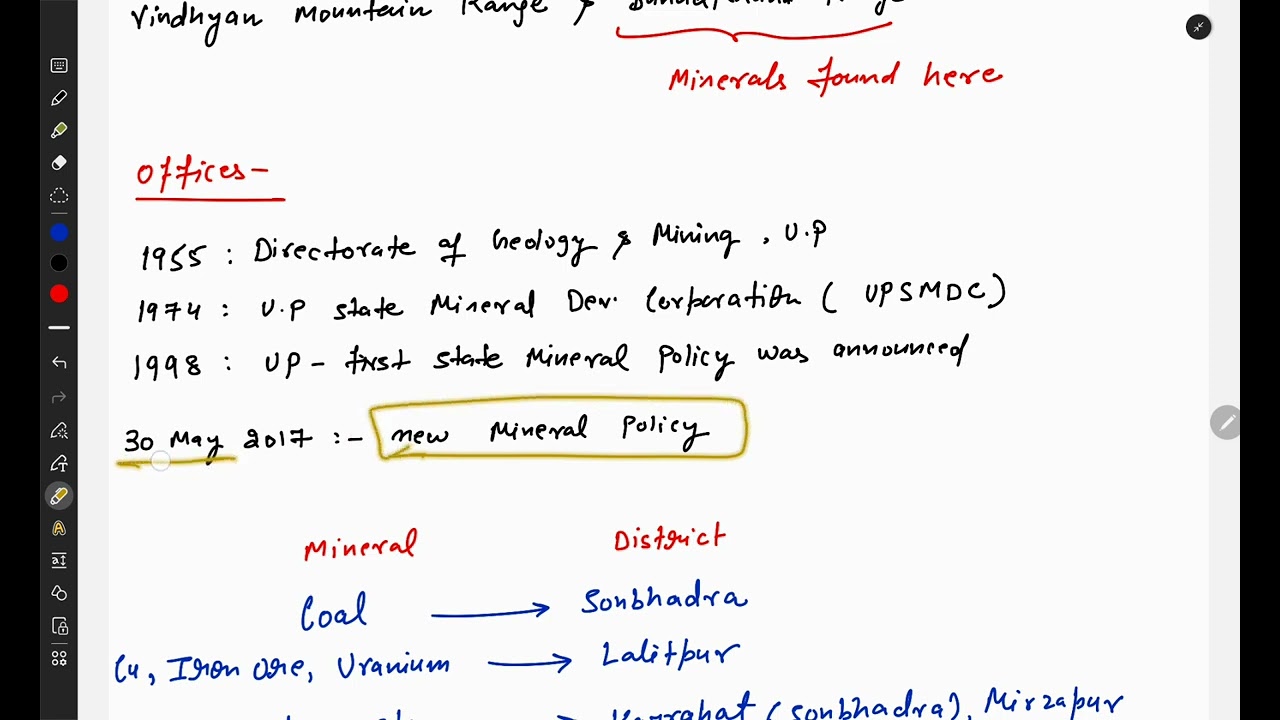 Vindhyan Mountain Range &
Minerals found here
Offices-
1955 : Directorate of Geology & Mining, U.P
1974 : U.P state Mineral Dev. Corporation ( UPSMDC)
1998 : UP - first state Mineral Policy was announced
30 May 2017 :- new Mineral Policy
Mineral District
Coal → Sonbhadra
Cu, Iron ore, Uranium → Lalitpur
(Sonbhadra), Mirzapur